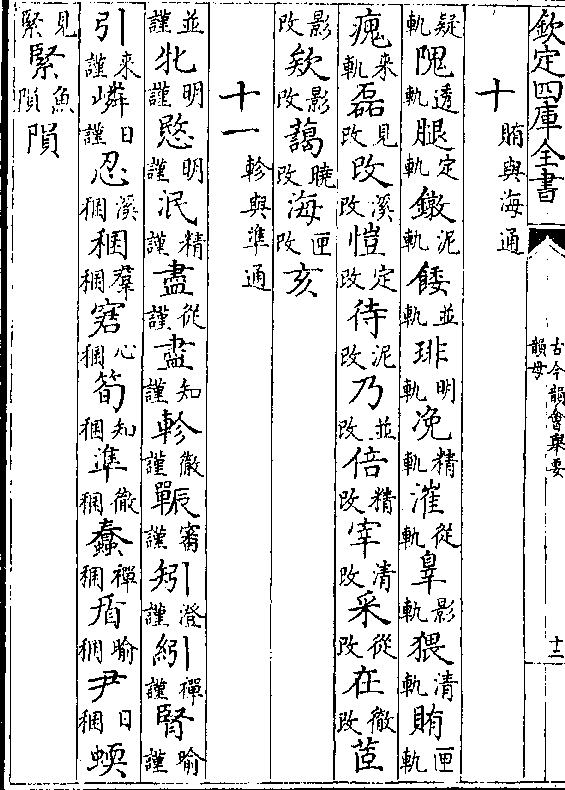 欽定四庫全書
古今韻會舉要
韻母
十二
十 賄與海通
疑軌隗透軌腿定軌鐓泥軌餧並軌琲明軌浼精軌漼從軌辠影軌猥清軌賄匣軌
瘣來軌磊見改改溪改愷定改待泥改乃並改倍精改宰清改采從改在徹改茝
影改欸影改藹曉改海匣改亥
十一 軫與準通
並謹牝明謹愍明謹泯精謹盡從謹盡知謹軫徹謹辴審謹矧澄謹紖禪謹腎喻謹
引來謹嶙日謹忍溪稇稇羣稇窘心稇筍知稇準徹稇蠢禪稇盾喻稇尹日稇蝡
見緊緊魚隕隕